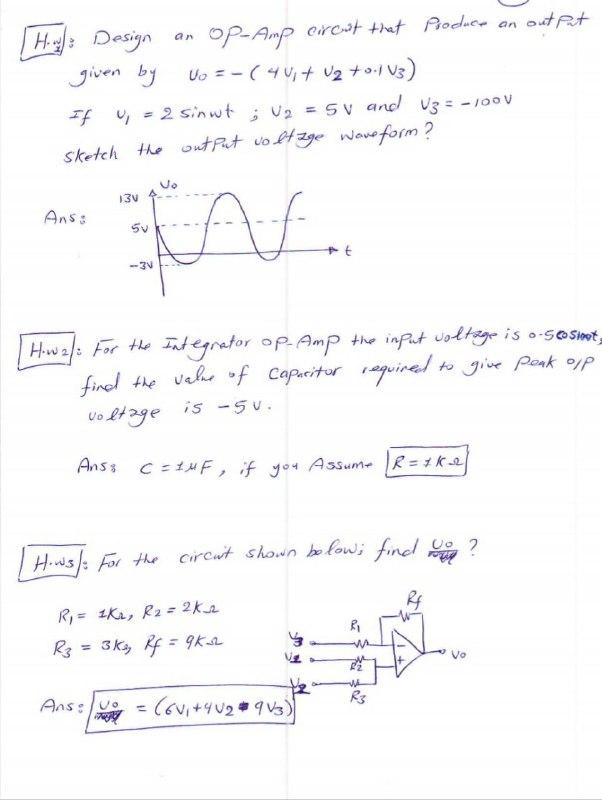 H.w1: Design an OP-Amp circut that Produce an output
given by Vo = - ( 4V1 + V2 + 0.1 V3)
If V1 = 2 sinwt ; V2 = 5V and V3 = -100V
sketch the output voltage waveform?
Vo
13V
Ans:
5V
t
-3V
H.w2: For the Integrator OP-Amp the input voltage is 0.5
find the value of Capacitor required to give Peak o/p
voltage is -5V.
Ans: C = 1µF, if you Assume R = 1KΩ
H.w3: For the circut shown below; find Vo ?
R1 = 1KΩ, R2 = 2KΩ
R3 = 3KΩ, Rf = 9KΩ
Rf
R1
V3
V1
R2
Vo
V2
R3
Ans: Vo = (6V1+4V2 - 9V3)